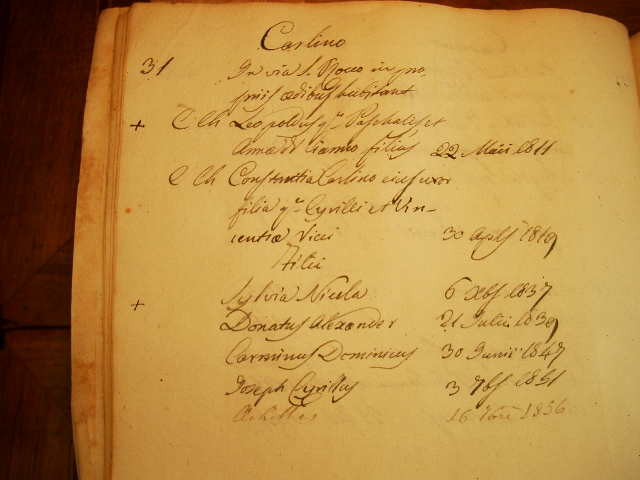 Carlino
31 In via S. Rocco in pro-
prijs ædibus habitant
+ C Ch Leopoldus qm Paschalis, et
Annæ Ciameo filius 22 Maii 1811
C Ch Constantia Carlino eius uxor
filia qm Cyrilli et Vin-
centiæ Vicci 30 Aplis 1819
Filii
+ Sylvia Nicola 6 Xbs 1837
Donatus Alexander 21 Julii 1839
Carminus Dominicus 30 Junii 1847
Joseph Cyrillus 3 7bs 1851
Achilles 16 1856